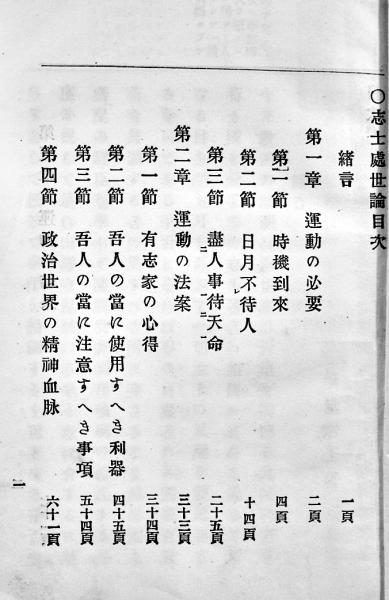 〇志士處世論目次
緒言 一頁
第一章 運動の必要 二頁
第一節 時機到來 四頁
第二節 日月不待人 十四頁
第三節 盡人事待天命 二十五頁
第二章 運動の法案 三十三頁
第一節 有志家の心得 三十四頁
第二節 吾人の當に使用すへき利器 四十五頁
第三節 吾人の當に注意すへき事項 五十四頁
第四節 政治世界の精神血脉 六十一頁
一